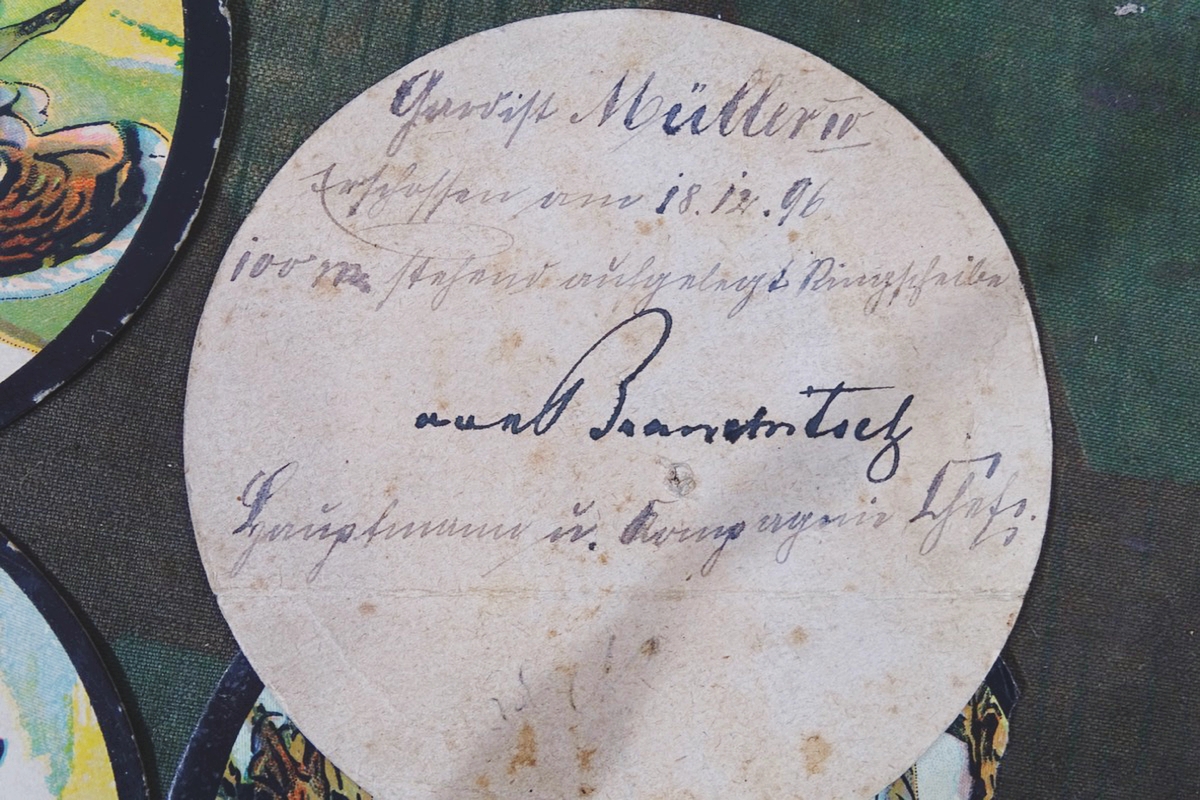 Gardist Müller IV
Erschossen am 18.12.96
100 m stehend aufgelegt Ringscheibe
von Brauchitsch
Hauptmann u. Kompagnie Chef.